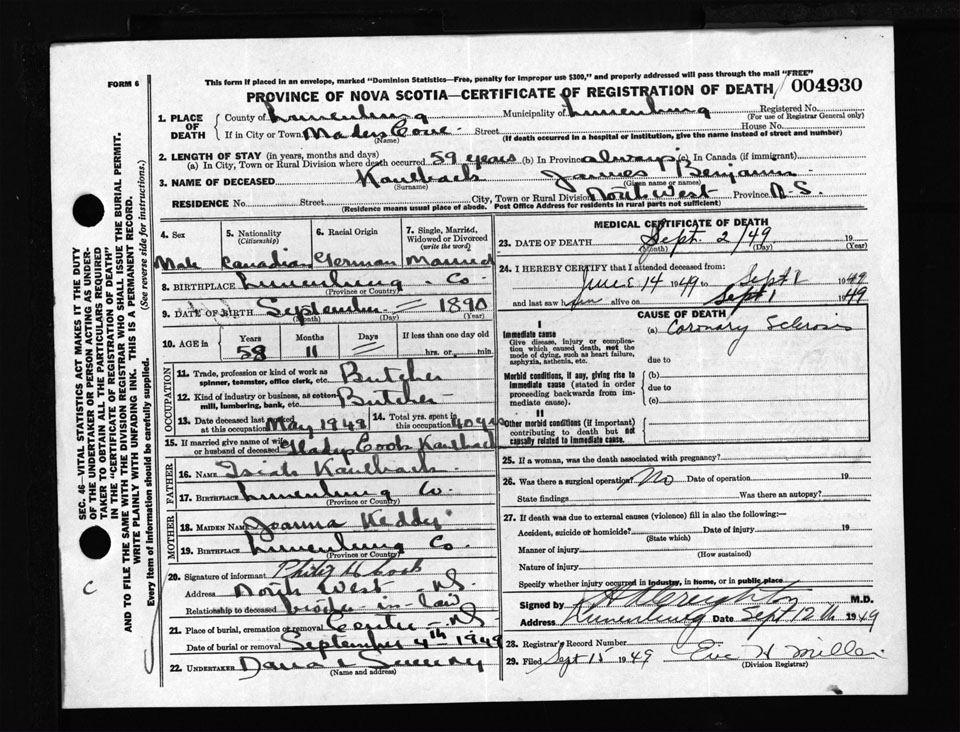 FORM 6
This form if placed in an envelope, marked "Dominion Statistics—Free, penalty for improper use $300," and properly addressed will pass through the mail "FREE"
PROVINCE OF NOVA SCOTIA—CERTIFICATE OF REGISTRATION OF DEATH / 004930
1. PLACE OF DEATH
County of Lunenburg Municipality of Lunenburg Registered No.
(For use of Registrar General only)
If in City or Town Maders Cove Street House No.
(Name) (If death occurred in a hospital or institution, give the name instead of street and number)
2. LENGTH OF STAY (in years, months and days)
(a) In City, Town or Rural Division where death occurred 59 years (b) In Province always (c) In Canada (if immigrant)
3. NAME OF DECEASED Kaulback James Benjamin
(Surname) (Given name or names)
RESIDENCE No. Street City, Town or Rural Division North West Province N.S.
(Residence means usual place of abode. Post Office Address for residents in rural parts not sufficient)
4. Sex
Male
5. Nationality
(Citizenship)
Canadian
6. Racial Origin
German
7. Single, Married, Widowed or Divorced
(write the word)
Married
8. BIRTHPLACE Lunenburg Co
(Province or Country)
9. DATE OF BIRTH September — 1890
(Month) (Day) (Year)
10. AGE in Years Months Days If less than one day old
58 11 — hrs. or min.
OCCUPATION
11. Trade, profession or kind of work as
spinner, teamster, office clerk, etc. Butcher
12. Kind of industry or business, as cotton
mill, lumbering, bank, etc. Butcher
13. Date deceased last worked
at this occupation May 1948
14. Total yrs. spent in
this occupation 40 yrs
15. If married give name of wife
or husband of deceased Gladys Cook Kaulback
FATHER
16. NAME Kaulback
17. BIRTHPLACE Lunenburg Co.
(Province or Country)
MOTHER
18. MAIDEN NAME Joanna Keddy
19. BIRTHPLACE Lunenburg Co.
(Province or Country)
20. Signature of informant Cook
Address North West NS
Relationship to deceased in-law
21. Place of burial, cremation or removal N.S.
Date of burial or removal September 4th 1949
22. UNDERTAKER
(Name and address)
MEDICAL CERTIFICATE OF DEATH
23. DATE OF DEATH Sept. 2/49 19
(Month) (Day) (Year)
24. I HEREBY CERTIFY that I attended deceased from:
June 14 1949 to Sept 1 1949
and last saw him alive on Sept 1 1949
CAUSE OF DEATH
I
Immediate cause
Give disease, injury or complication which caused death, not the mode of dying, such as heart failure, asphyxia, asthenia, etc.
(a) Coronary Sclerosis
due to
Morbid conditions, if any, giving rise to immediate cause (stated in order proceeding backwards from immediate cause).
(b)
due to
(c)
II
Other morbid conditions (if important) contributing to death but not causally related to immediate cause.
25. If a woman, was the death associated with pregnancy?
26. Was there a surgical operation? No Date of operation 19
State findings Was there an autopsy?
27. If death was due to external causes (violence) fill in also the following:—
Accident, suicide or homicide? Date of injury 19
(State which)
Manner of injury
(How sustained)
Nature of injury
Specify whether injury occurred in industry, in home, or in public place
Signed by Creighton M.D.
Address Lunenburg Date Sept 12th 1949
28. Registrar's Record Number
29. Filed Sept 15 1949 H Miller
(Division Registrar)
SEC. 46—VITAL STATISTICS ACT MAKES IT THE DUTY
OF THE UNDERTAKER OR PERSON ACTING AS UNDER-
TAKER TO OBTAIN ALL THE PARTICULARS REQUIRED
IN THE "CERTIFICATE OF REGISTRATION OF DEATH"
AND TO FILE THE SAME WITH THE DIVISION REGISTRAR WHO SHALL ISSUE THE BURIAL PERMIT.
WRITE PLAINLY WITH UNFADING INK. THIS IS A PERMANENT RECORD.
Every item of information should be carefully supplied. (See reverse side for instructions.)
C